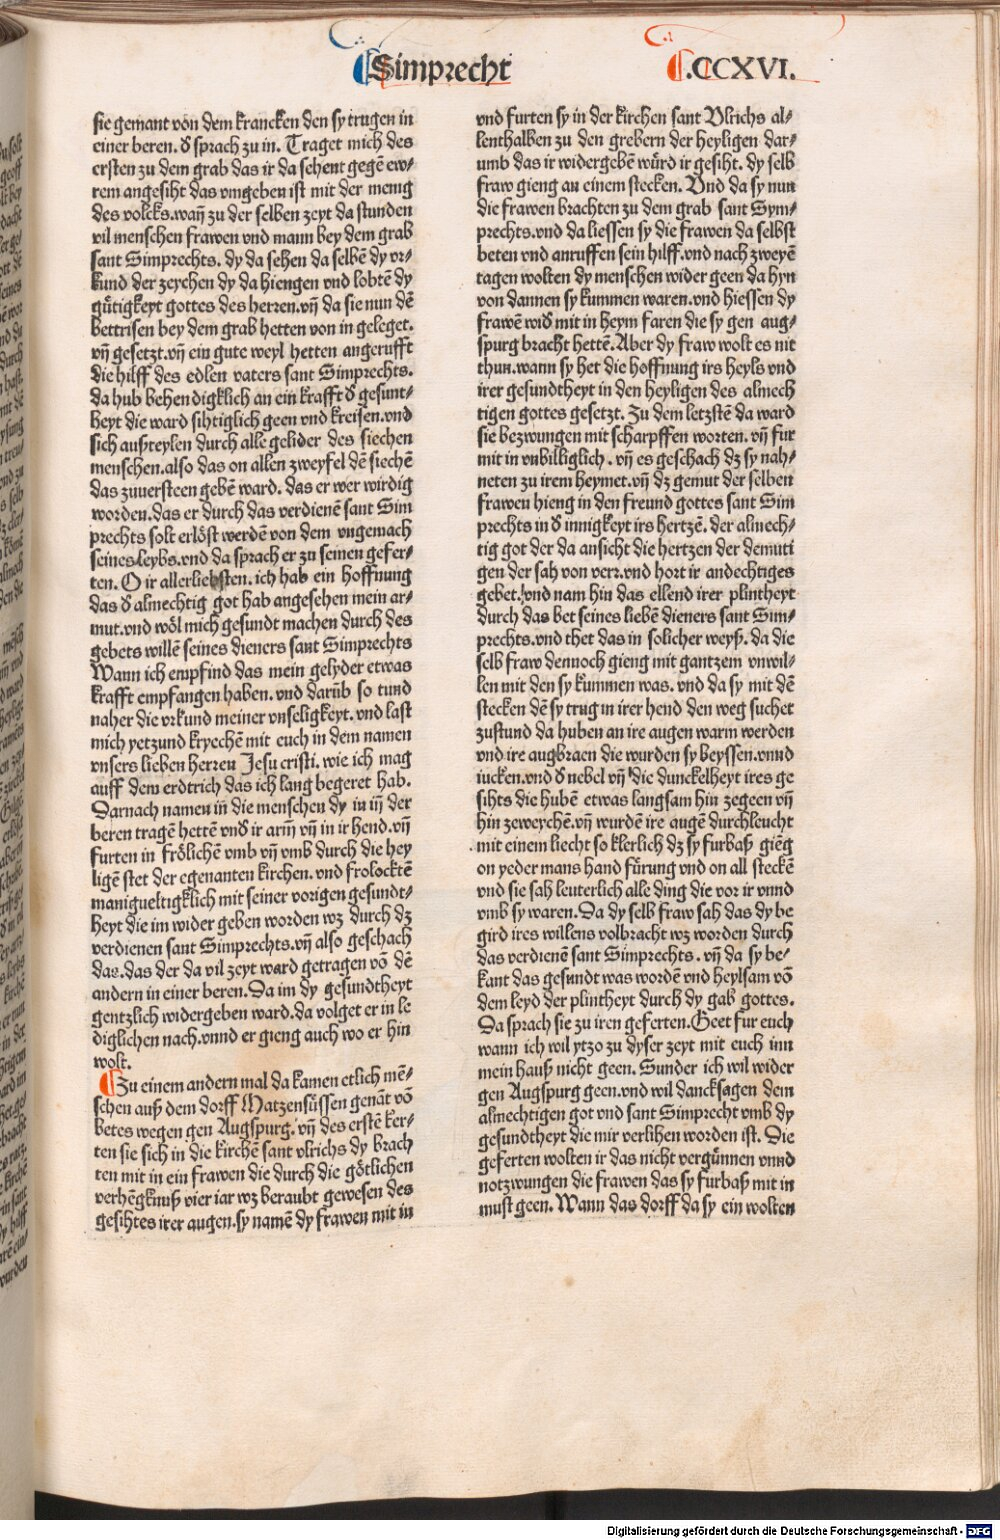 Simprecht
.CCXVI.
sie gemant von dem krancken den sy trugen in
einer beren. d̕ sprach zu in. Traget mich des
ersten zu dem grab das ir da sehent gegē ew⸗
rem angesiht das vmgeben ist mit der menig
des volcks.wañ zu der selben zeyt da stunden
vil menschen frawen vnd mann bey dem grab
sant Simprechts. dy da sehen da selbē dy vr⸗
kund der zeychen dy da hiengen vnd lobtē dy
gütigkeyt gottes des herren.vñ da sie nun dē
bettrisen bey dem grab hetten von in geleget.
vñ gesetzt.vñ ein gute weyl hetten angerufft
die hilff des edlen vaters sant Simprechts.
da hub behendigklich an ein krafft d̕ gesunt⸗
heyt die ward sihtiglich geen vnd kreisen.vnd
sich außteylen durch alle gelider des siechen
menschen.also das on allen zweyfel dē siechē
das zuuersteen gebē ward. das er wer wirdig
worden.das er durch das verdienē sant Sim
prechts solt erlöst werdē von dem vngemach
seines leybs.vnd da sprach er zu seinen gefer⸗
ten. O ir allerliebsten. ich hab ein hoffnung
das d̕ almechtig got hab angesehen mein ar⸗
mut.vnd wöl mich gesundt machen durch des
gebets willē seines dieners sant Simprechts
Wann ich empfind das mein gelyder etwas
krafft empfangen haben. vnd darūb so tund
naher die vrkund meiner vnseligkeyt. vnd last
mich yetzund kryechē mit euch in dem namen
vnsers lieben herren Jesu cristi. wie ich mag
auff dem erdtrich das ich lang begeret hab.
Darnach namen in̄ die menschen dy in iñ der
beren tragē hettē vnd̕ ir arm̄ vñ in ir hend.vñ
furten in frölichē vmb vñ vmb durch die hey
ligē stet der egenanten kirchen. vnd frolocktē
manigueltigklich mit seiner vorigen gesundt⸗
heyt die im wider geben worden wz durch dz
verdienen sant Simprechts.vñ also geschach
das.das der da vil zeyt ward getragen vō dē
andern in einer beren.Da im dy gesundtheyt
gentzlich widergeben ward.da volget er in le
diglichen nach.vnnd er gieng auch wo er hin
wolt.
Zu einem andern mal da kamen etlich mē⸗
schen auß dem dorff Matzensüssen genāt vō
betes wegen gen Augspurg. vñ des erstē ker⸗
ten sie sich in die kirchē sant vlrichs dy brach
ten mit in ein frawen die durch die götlichen
verhēgknuß vier iar wz beraubt gewesen des
gesihtes irer augen.sy namē dy frawen mit in
vnd furten sy in der kirchen sant Vlrichs al⸗
lenthalben zu den grebern der heyligen dar⸗
umb das ir widergebē würd ir gesiht. dy selb
fraw gieng an einem stecken. Vnd da sy nun
die frawen brachten zu dem grab sant Sym⸗
prechts.vnd da liessen sy die frawen da selbst
beten vnd anruffen sein hilff.vnd nach zweyē
tagen wolten dy menschen wider geen da hyn
von dannen sy kummen waren.vnd hiessen dy
frawē wid̕ mit in heym faren die sy gen aug⸗
spurg bracht hettē.Aber dy fraw wolt es nit
thun.wann sy het die hoffnung irs heyls vnd
irer gesundtheyt in den heyligen des almech
tigen gottes gesetzt. Zu dem letzstē da ward
sie bezwungen mit scharpffen worten. vñ fur
mit in vnbilliglich. vñ es geschach dz sy nah⸗
neten zu irem heymet.vñ dz gemut der selben
frawen hieng in den freund gottes sant Sim
prechts in d̕ innigkeyt irs hertzē. der almech⸗
tig got der da ansicht die hertzen der demuti
gen der sah von verr.vnd hort ir andechtiges
gebet.vnd nam hin das ellend irer plintheyt
durch das bet seines liebē dieners sant Sim⸗
prechts.vnd thet das in solicher weyß. da die
selb fraw dennoch gieng mit gantzem vnwil⸗
len mit den sy kummen was. vnd da sy mit dē
stecken dē sy trug in irer hend den weg suchet
zustund da huben an ire augen warm werden
vnd ire augbraen die wurden sy beyssen.vnnd
iucken.vnd d̕ nebel vñ die dunckelheyt ires ge
sihts die hubē etwas langsam hin zegeen vñ
hin zeweychē.vñ wurdē ire augē durchleucht
mit einem liecht so klerlich dz sy furbaß giēg
on yeder mans hand fürung vnd on all steckē
vnd sie sah leuterlich alle ding die vor ir vnnd
vmb sy waren.Da dy selb fraw sah das dy be
gird ires willens volbracht wz worden durch
das verdienē sant Simprechts. vñ da sy be⸗
kant das gesundt was wordē vnd heylsam vō
dem leyd der plintheyt durch dy gab gottes.
Da sprach sie zu iren geferten.Geet fur euch
wann ich wil ytzo zu dyser zeyt mit euch inn
mein hauß nicht geen. Sunder ich wil wider
gen Augspurg geen.vnd wil dancksagen dem
almechtigen got vnd sant Simprecht vmb dy
gesundtheyt die mir verlihen worden ist. Die
geferten wolten ir das nicht vergünnen vnnd
notzwungen die frawen das sy furbaß mit in
must geen. Wann das dorff da sy ein wolten
Digitalisierung gefördert durch die Deutsche Forschungsgemeinschaft - DFG